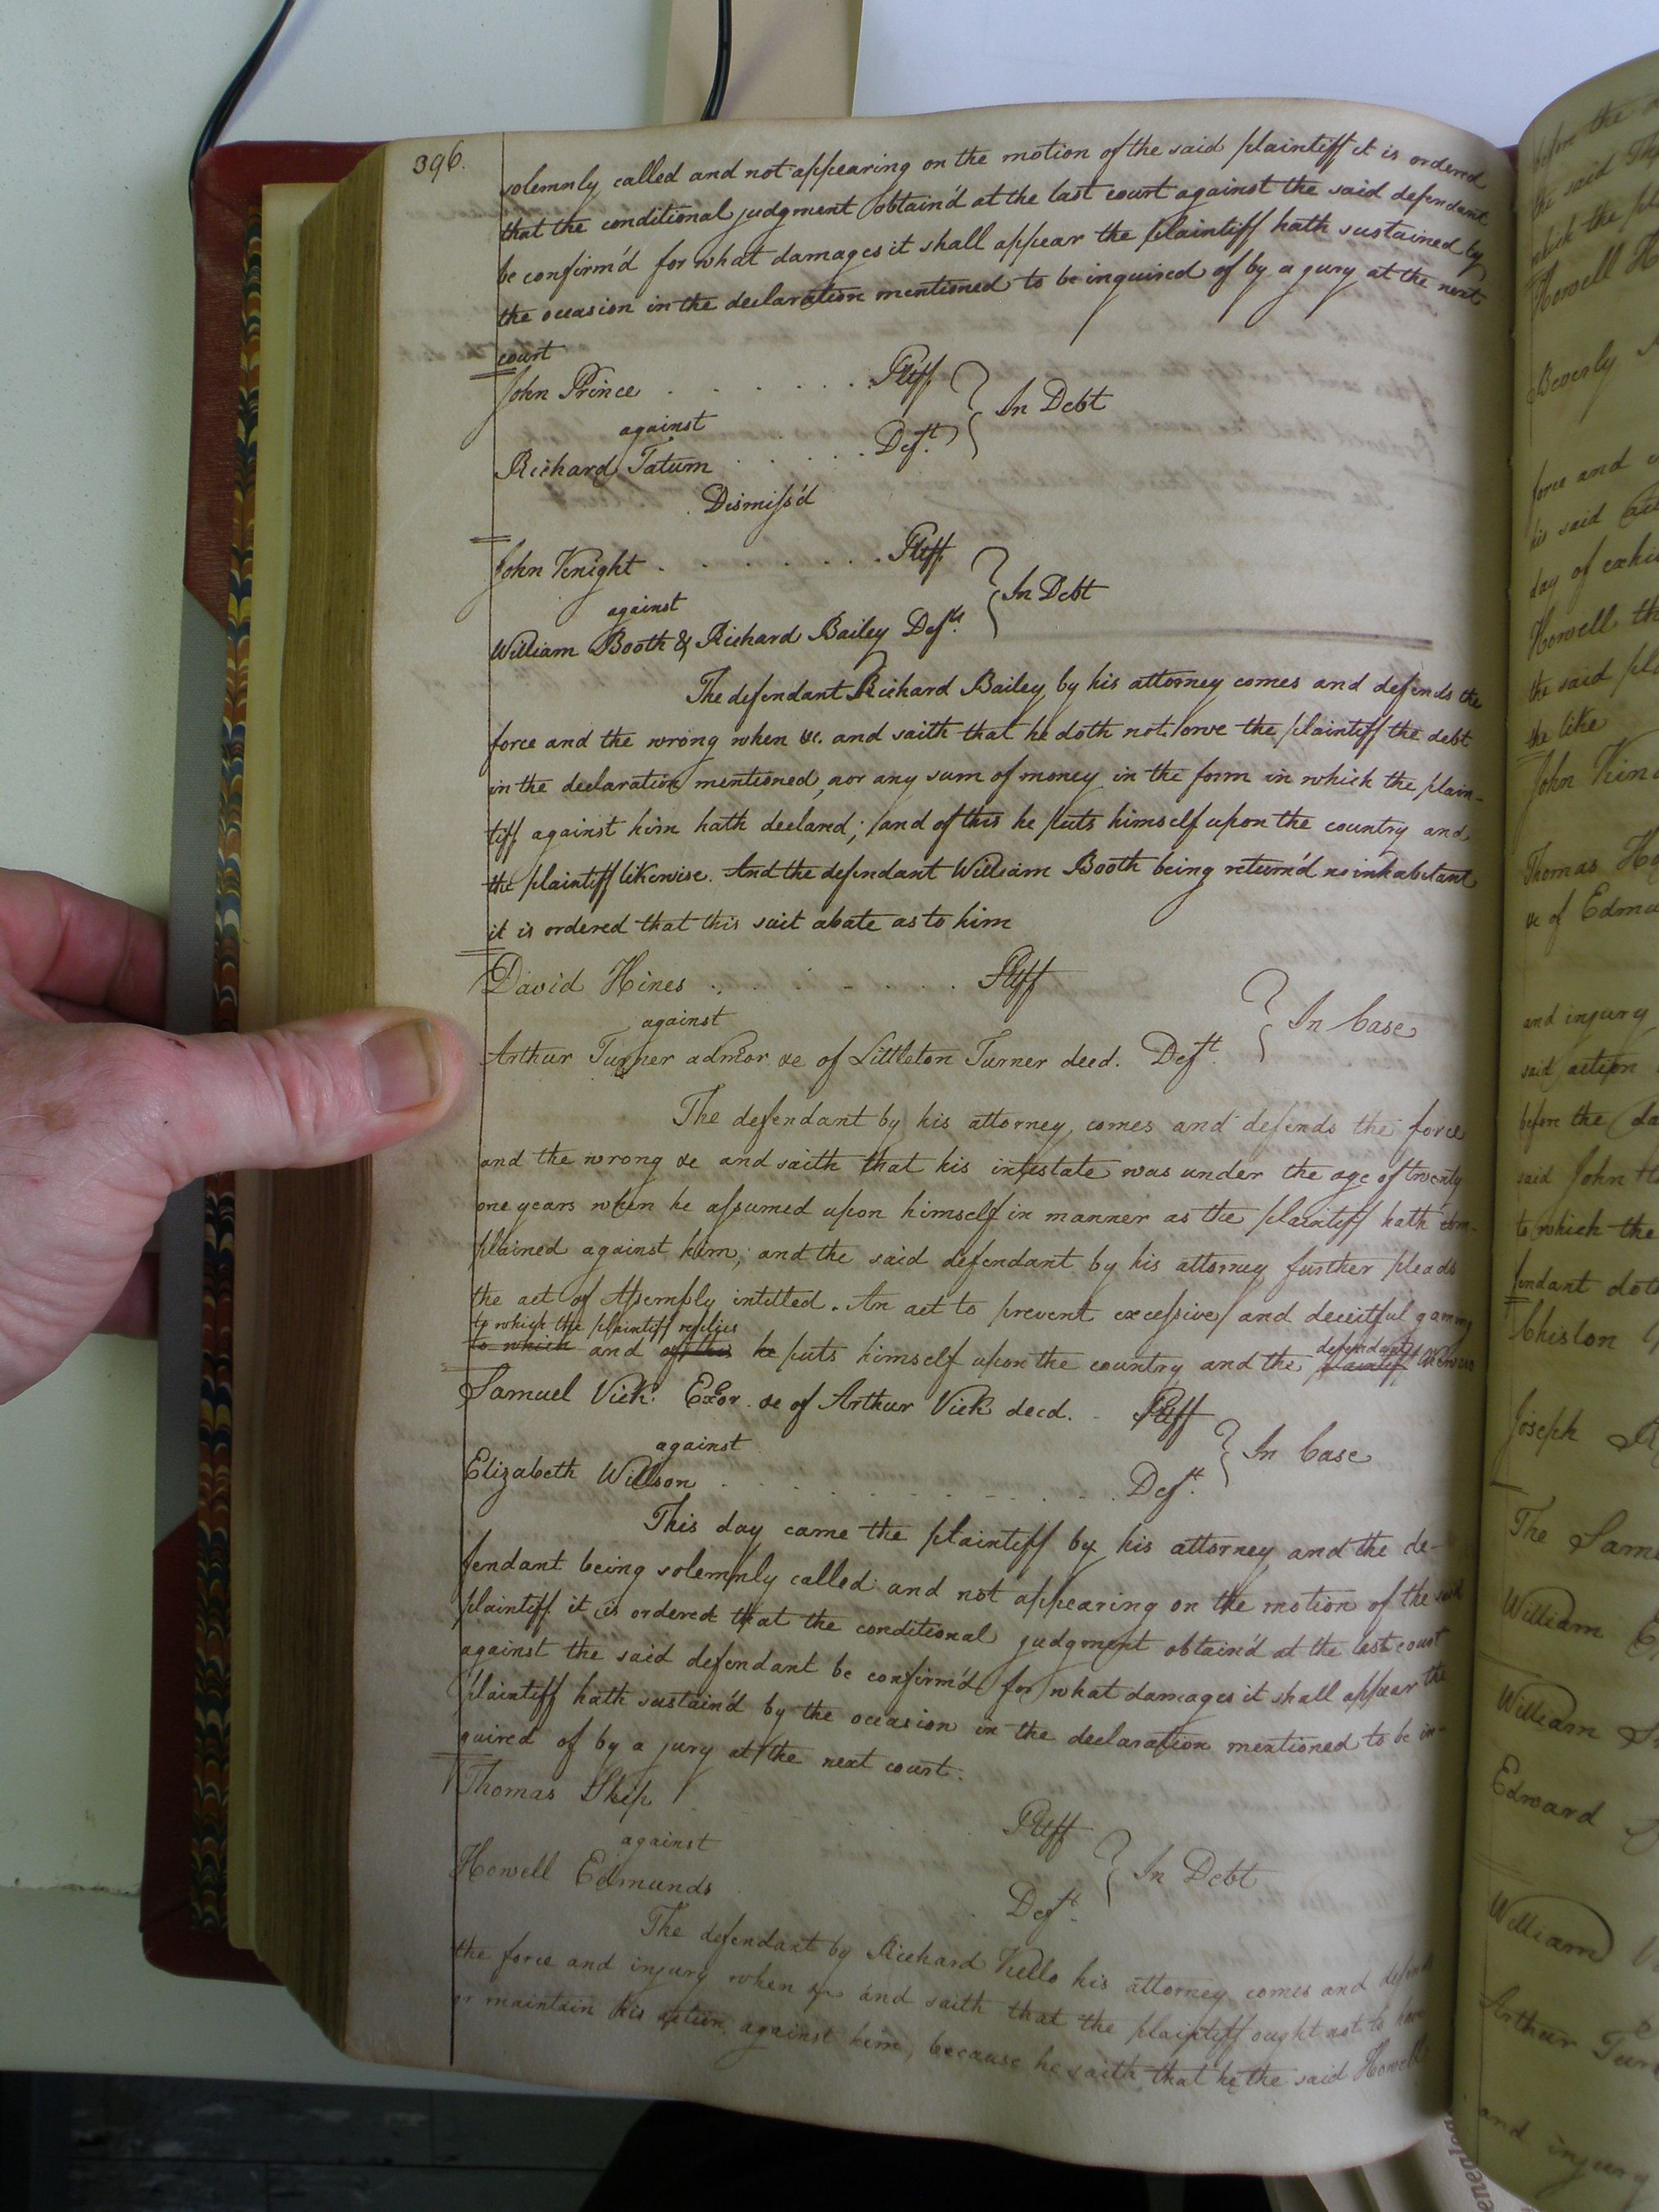 396.
solemnly called and not appearing on the motion of the said plaintiff it is ordered
that the conditional judgment obtain'd at the last court against the said defendant
be confirm'd for what damages it shall appear the plaintiff hath sustained by
the occasion in the declaration mentioned to be inquired of by a jury at the next
court
John Prince . . . . . . . Pltff
against
In Debt
Richard Tatum . . . . . . Deft.
Dismiss'd
John Knight . . . . . . . . Pltff
against
In Debt
William Booth & Richard Bailey Defts.
The defendant Richard Bailey by his attorney comes and defends the
force and the wrong when &c. and saith that he doth not owe the plaintiff the debt
in the declaration mentioned, nor any sum of money in the form in which the plain-
tiff against him hath declared; and of this he puts himself upon the country and
the plaintiff likewise. And the defendant William Booth being return'd no inhabitant
it is ordered that this suit abate as to him
David Hines . . . . . . . Pltff
against
In Case
Arthur Turner admor &c of Littleton Turner decd. Deft.
The defendant by his attorney comes and defends the force
and the wrong &c and saith that his intestate was under the age of twenty
one years when he assumed upon himself in manner as the plaintiff hath com-
plained against him; and the said defendant by his attorney further pleads
the act of Assembly intitled. An act to prevent excessive and deceitful gaming
to which the plaintiff replies
to which and of this he puts himself upon the country and the plaintiff defendant likewise
Samuel Vick Exor. &c of Arthur Vick decd. - Pltff
against
In Case
Elizabeth Willson . . . . . . . . . . Deft.
This day came the plaintiff by his attorney and the de-
fendant being solemnly called and not appearing on the motion of the said
plaintiff it is ordered that the conditional judgment obtain'd at the last court
against the said defendant be confirm'd for what damages it shall appear the
plaintiff hath sustain'd by the occasion in the declaration mentioned to be in-
quired of by a jury at the next court.
Thomas Skip . . . . Pltff
against
In Debt
Howell Edmunds . . . Deft.
The defendant by Richard Kello his attorney comes and defends
the force and injury when &c and saith that the plaintiff ought not to have
or maintain his action against him, because he saith that he the said Howell
before the
the said
which the
Howell
Beverly
force and
his said
day of
Howell the
the said
the like
John
Thomas
&c of
and injury
said action
before the
said John
to which the
fendant doth
Chislon
Joseph
The
William
William
Edward
William
Arthur
and injury